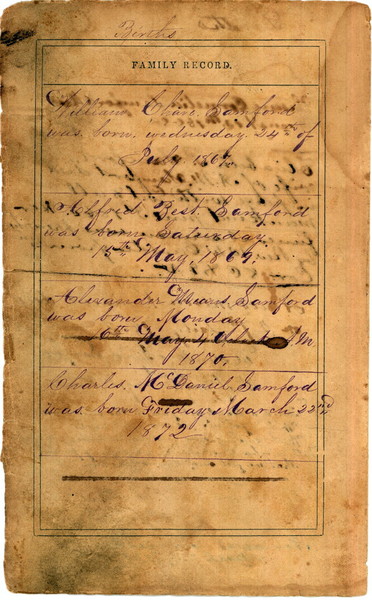 Births
FAMILY RECORD.
William Samford
was born, wednesday 24th of
July 1867.
Alfred Best Samford
was born Saturday
15th May, 1869.
Alexander Means Samford
was born Monday
1870.
Charles McDaniel Samford
was born Friday March 22nd
1872